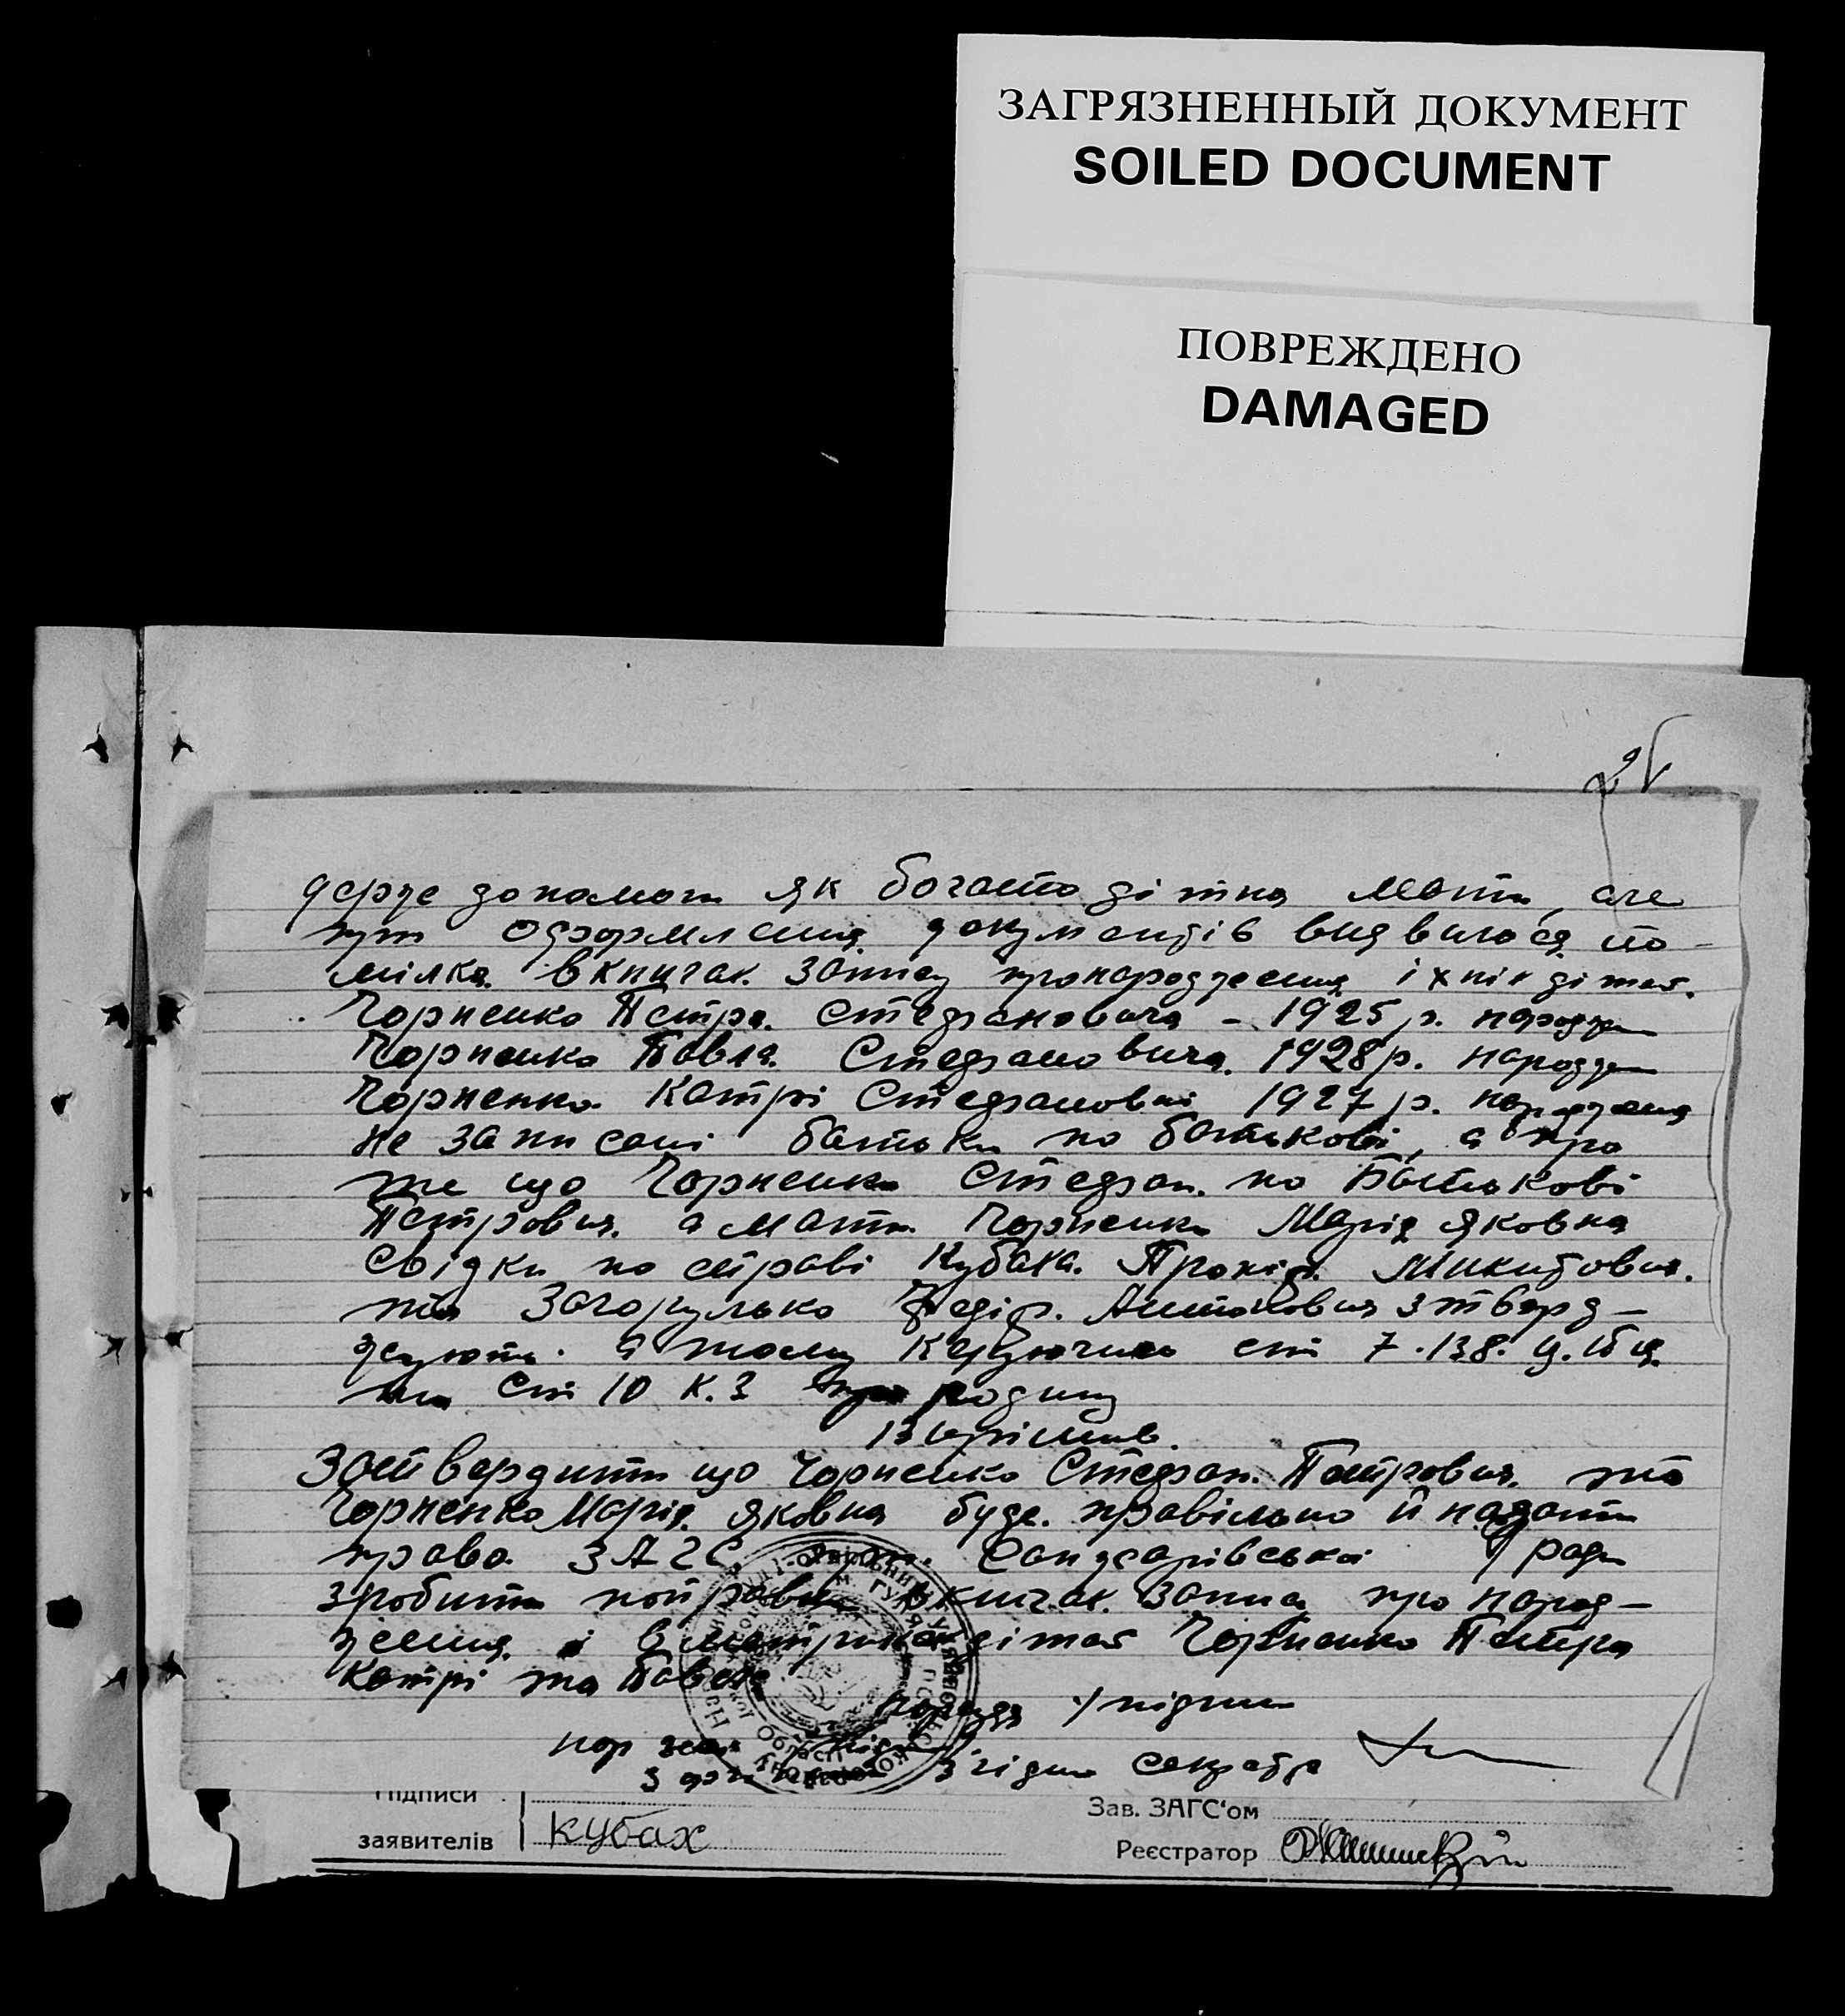 ЗАГРЯЗНЕННЫЙ ДОКУМЕНТ
SOILED DOCUMENT
ПОВРЕЖДЕНО
DAMAGED
держе допомоги як богатодітна мати, але
при оформлення документів виявилося по-
мілка в книгах запису про народження їхніх дітей.
Чорненко Петра Стефановича - 1925 р. народжен
Чорненко Павла Стефановича 1928 р. народжен
Чорненко Катрі Стефановни 1927 р. народження
не записані батьки по батькові, а про
те що Чорненко Стефан по Батькові
Петрович а мати Чорненко Марія Яковна
Свідки по справі Кубах Прохір Микитович
та Загорулько Федір Антонович зтверд-
жують. а тому керуючись ст 7. 138.
та Ст 10 К.З про родину
Вирішив
Затвердити що Чорненко Стефан Петрович та
Чорненко Марія Яковна буде правільно й надати
право ЗАГС Сандгарівської с/ради
зробити поправки в книгах запис про народ-
ження і в метриках дітей Чорненко Петра
Катрі та Павла
п/підпис
Нар зас
З згідно Секретар
Підписи
заявителів
Кубах
Зав. ЗАГС'ом
Реєстратор